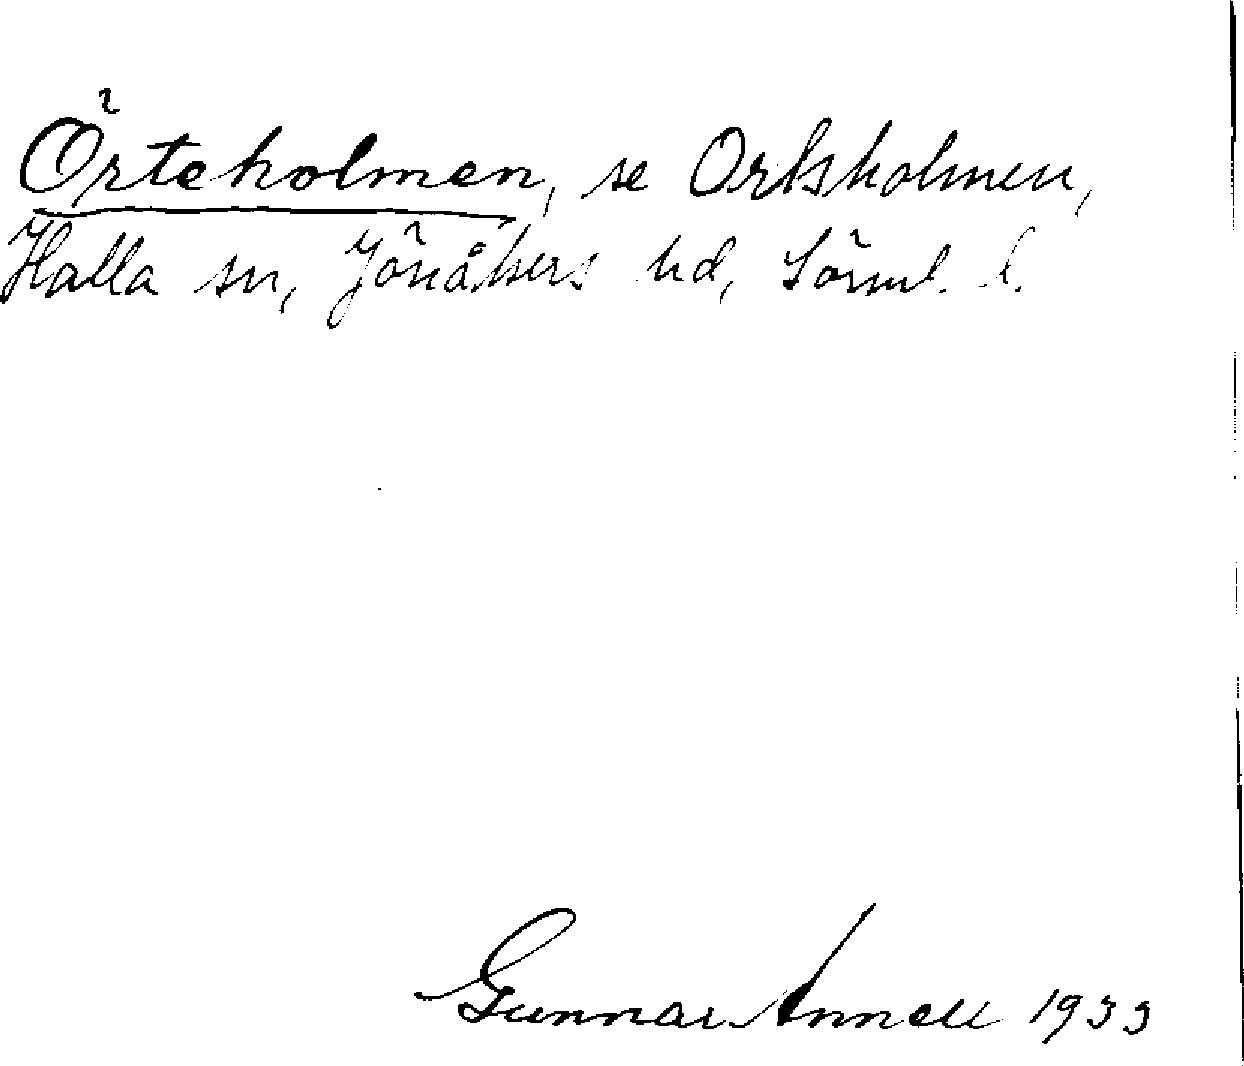 Örteholmen, se Orksholmen,
Halla sn, Jönåkers hd, Söml. l.
Gunnar Annell 1933